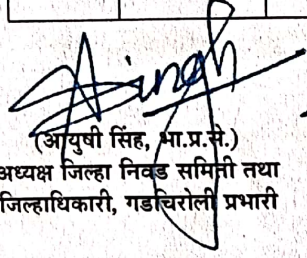 Singh
(आयुषी सिंह, भा.प्र.से.)
अध्यक्ष जिल्हा निवड समिती तथा
जिल्हाधिकारी, गडचिरोली प्रभारी